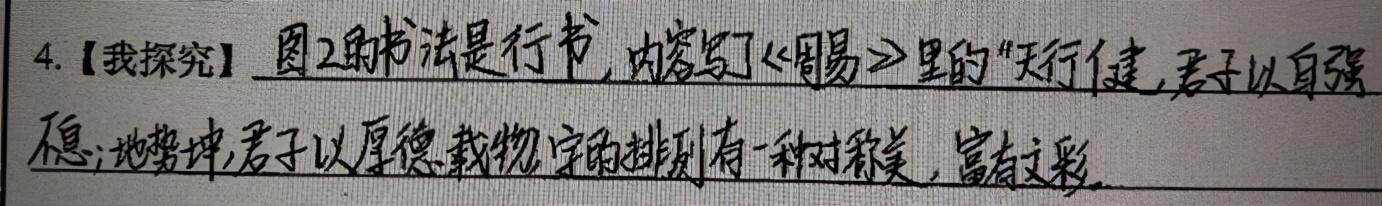 4.【我探究】图2的书法是行书，内容写了《周易》里的“天行健，君子以自强
不息；地势坤，君子以厚德载物，字的排列有一种对称美，富有文彩。